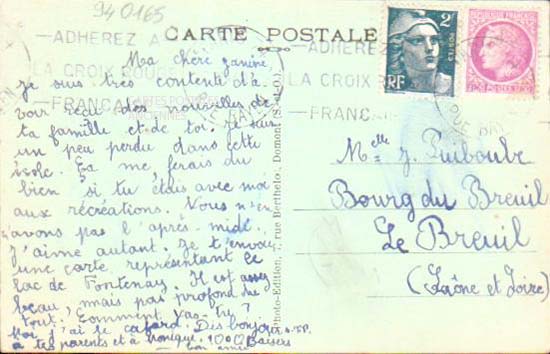 940165
CARTE POSTALE
ADHEREZ A
LA CROIX ROUGE
FRANCAISE
ADHEREZ
LA CROIX
FRANC
2
POSTES
RF
REPUBLIQUE FRANCAISE
Ma chère
je suis très contente d'a-
voir reçu des nouvelles de
ta famille et de toi. Je suis
un peu perdu dans cette
école. Ça me ferais du
bien si tu étais avec moi
aux récréations. Nous n'en
avons pas l'après-midi
J'aime autant. Je t'envoie
une carte représentant le
lac de Fontenay. Il est assez
beau, mais pas profond du
tout. Comment vas-tu?
Moi j'ai le cafard. Dis bonjour
à tes parents et à Monique. 1000 Baisers
Ton amie
Photo-Edition, 7, rue Berthelot, Domont (S.-&-O.)
Melle J. Puiboube
Bourg du Breuil
Le Breuil
(Saône et Loire)